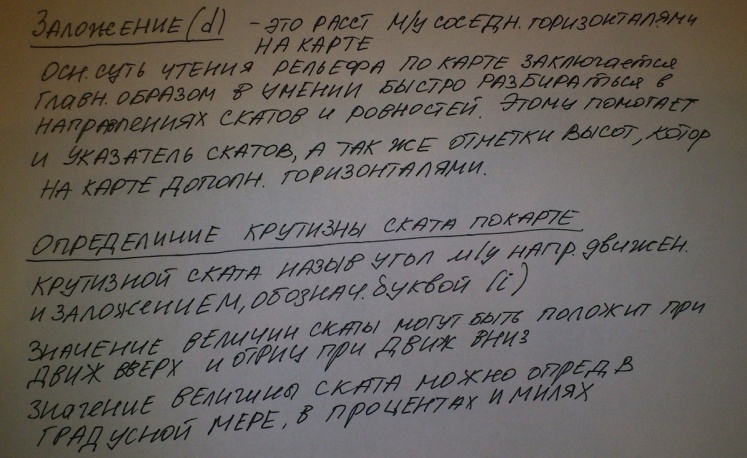 ЗАЛОЖЕНИЕ (d) - ЭТО РАССТ М/У СОСЕДН. ГОРИЗОНТАЛЯМИ
НА КАРТЕ
ОСН. СУТЬ ЧТЕНИЯ РЕЛЬЕФА ПО КАРТЕ ЗАКЛЮЧАЕТСЯ
ГЛАВН. ОБРАЗОМ В УМЕНИИ БЫСТРО РАЗБИРАТЬСЯ В
НАПРАВЛЕНИЯХ СКАТОВ И РОВНОСТЕЙ. ЭТОМУ ПОМОГАЕТ
И УКАЗАТЕЛЬ СКАТОВ, А ТАК ЖЕ ОТМЕТКИ ВЫСОТ, КОТОР
НА КАРТЕ ДОПОЛН. ГОРИЗОНТАЛЯМИ.
ОПРЕДЕЛИНИЕ КРУТИЗНЫ СКАТА ПОКАРТЕ
КРУТИЗНОЙ СКАТА НАЗЫВ УГОЛ М/У НАПР. ДВИЖЕН.
И ЗАЛОЖЕНИЕМ, ОБОЗНАЧ. БУКВОЙ (i)
ЗНАЧЕНИЕ ВЕЛИЧИН СКАТЫ МОГУТ БЫТЬ ПОЛОЖИТ ПРИ
ДВИЖ ВВЕРХ И ОТРИЦ ПРИ ДВИЖ ВНИЗ
ЗНАЧЕНИЕ ВЕЛИЧИНЫ СКАТА МОЖНО ОПРЕД В
ГРАДУСНОЙ МЕРЕ, В ПРОЦЕНТАХ И МИЛЯХ